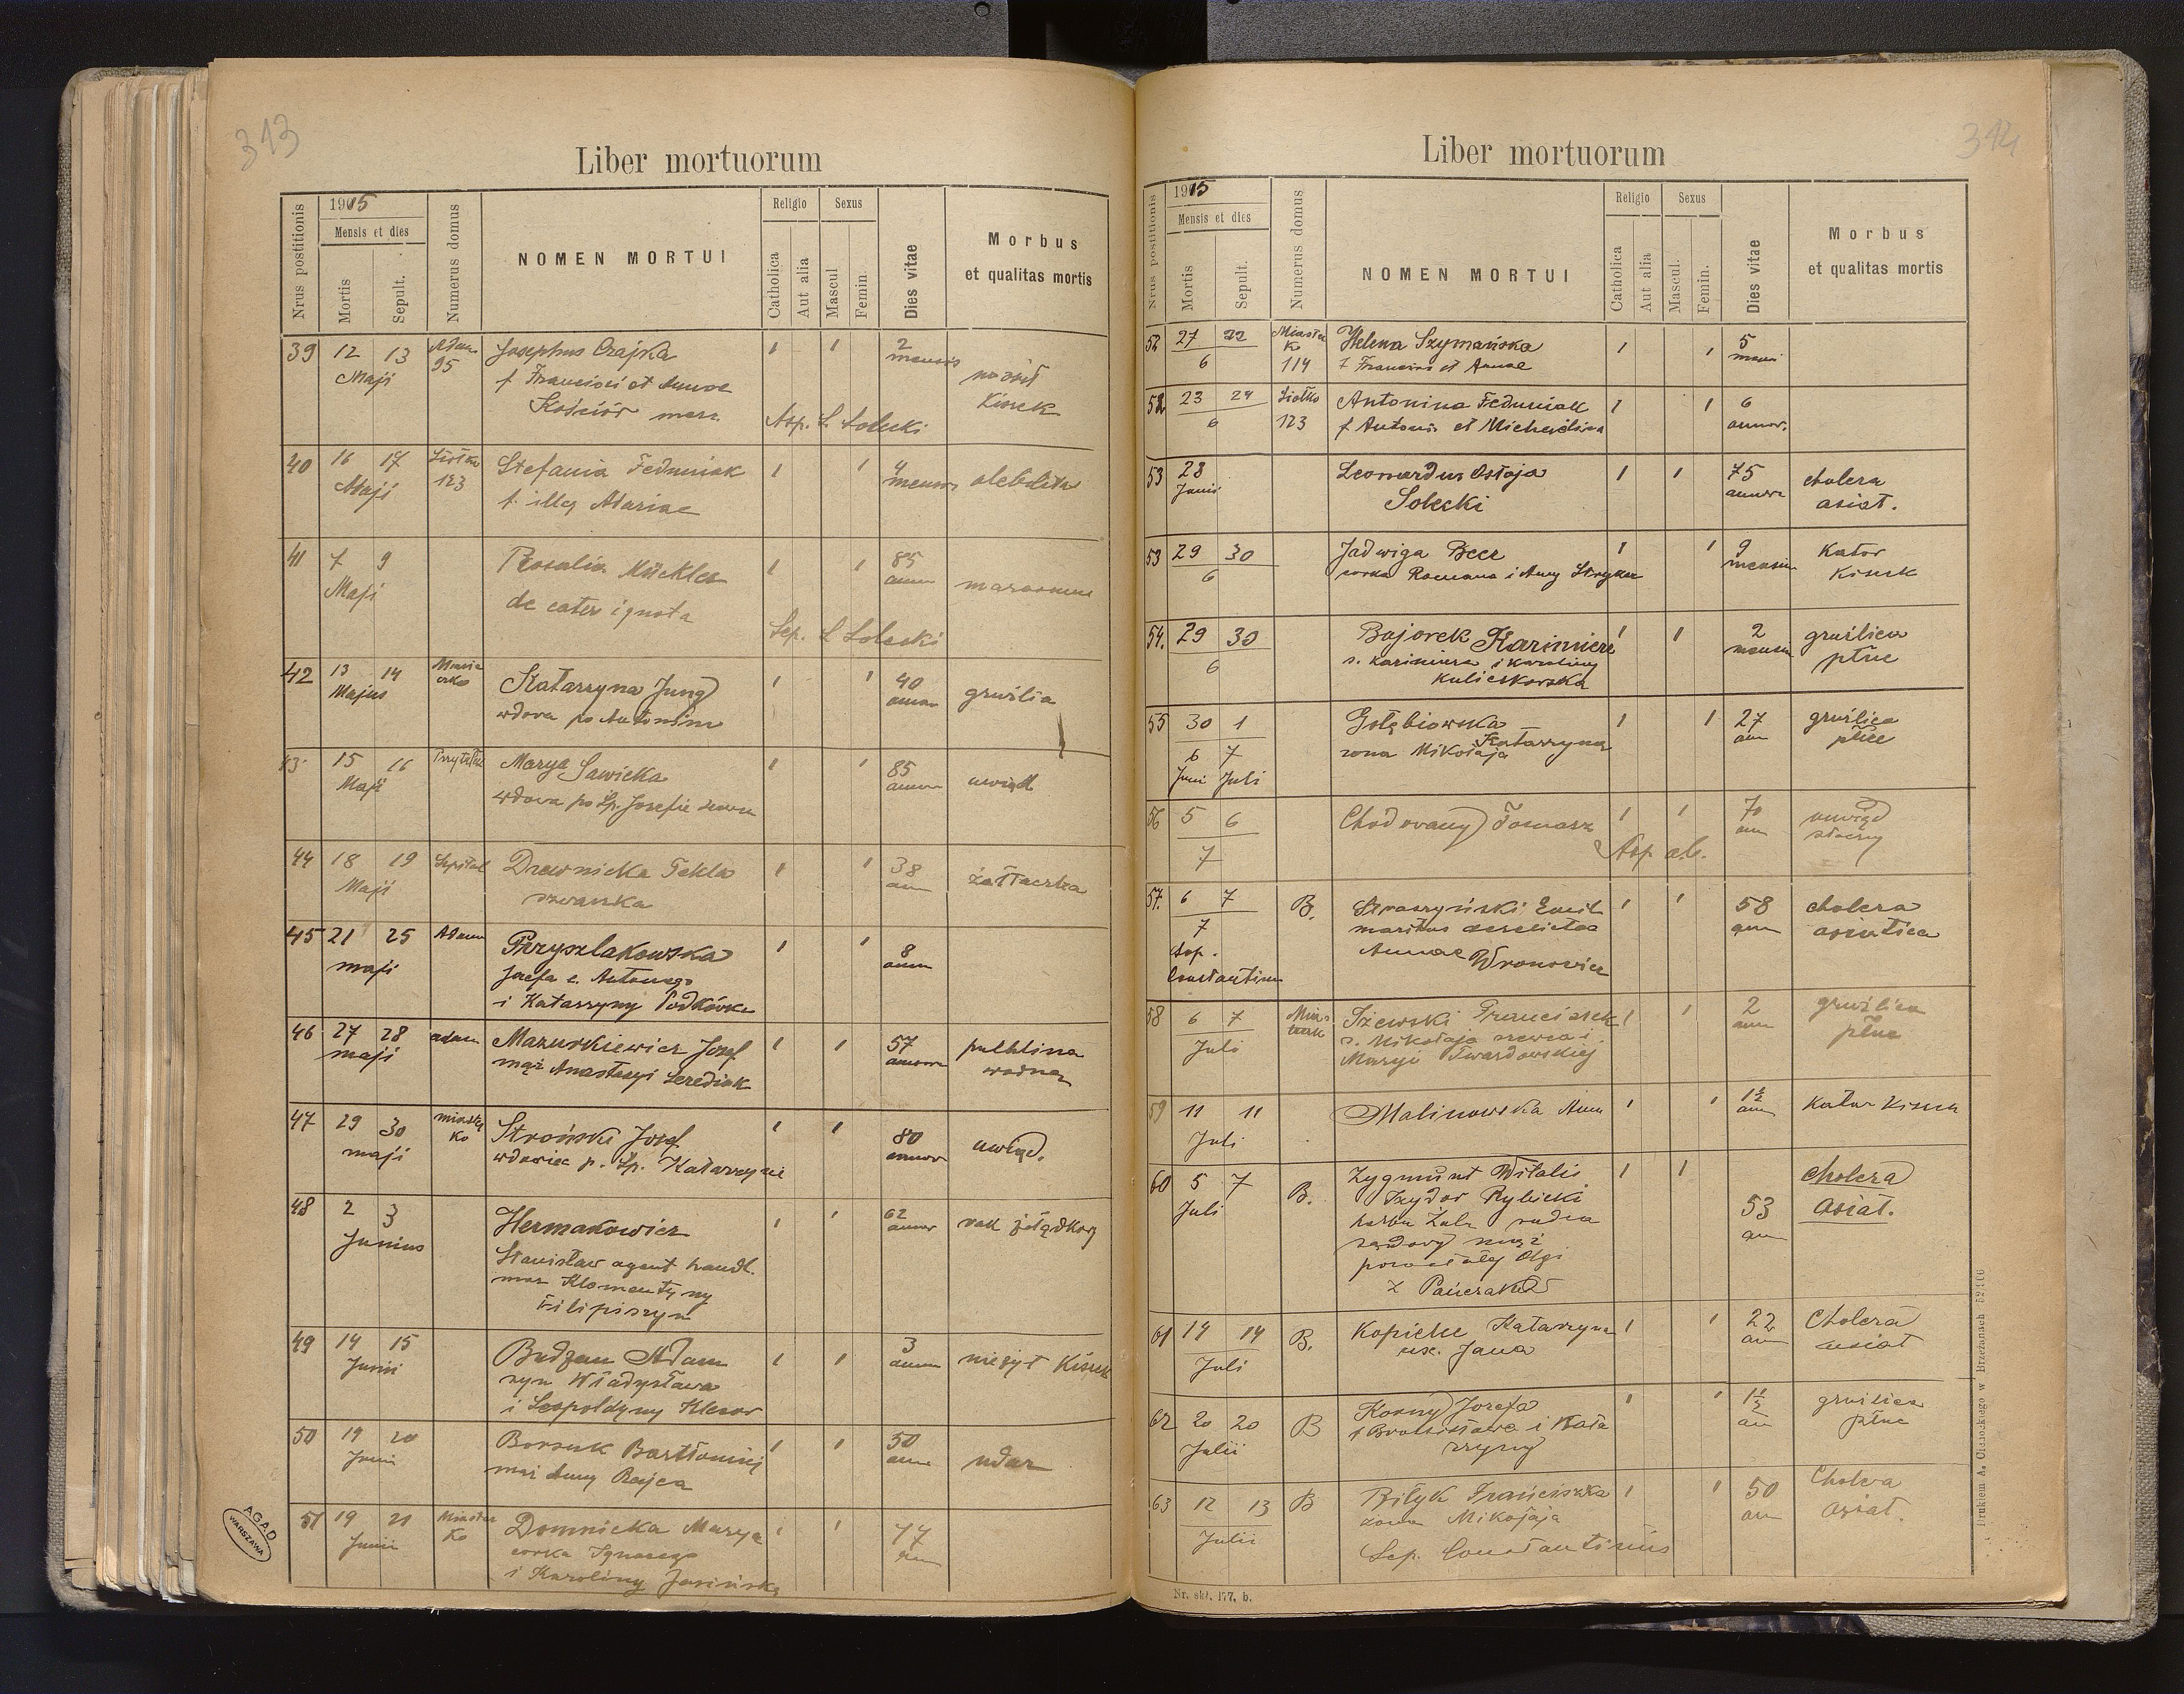 313
Liber mortuorum
Nrus postitionis
1915
Mensis et dies
Mortis
Sepult.
Numerus domus
NOMEN MORTUI
Religio
Catholica
Aut alia
Sexus
Mascul
Femin.
Dies vitae
Morbus
et qualitas mortis
39 12 13 Adam. Josephus Czajka 1 1 2
Maji 95 f Francisci et Annae mensis
Kościów
Kiszek
Sep. L. Solecki
40 16 17 Siołko Stefania Feduniak 1 1 4
Maji 123 f. illeg Mariae mensis
41 7 9 Rosalia Mückler 1 1 85
Maji de cetero ignota annor
Sep. L Solecki
42 13 14 Katarzyna Jung 1 1 40 gruźlica
Majus wdowa po Antonim annor
43 15 16 Marya Sawicka 1 1 85 uwiąd
Maji wdowa po śp. Józefie annor
44 18 19 Szpital Drewnicka Tekla 1 1 38 żółtaczka
Maji szwaczka ann
45 21 25 Adam Przyszlakowska 1 1 8
maji Józefa c. Antoniego ann
i Katarzyny Podkówka
46 27 28 adam Mazurkiewicz Józef 1 1 57 puchlina
maji mąż Anastazyi Serediak annor wodna
47 29 30 miastecz Stroński Józef 1 1 80 uwiąd.
maji ko wdowiec p. śp. Katarzynie annor
48 2 3 Hermakowicz 1 1 62 rak żołądkowy
Junius Stanisław agent handl. annor
mąż Klementyny
Filipiszyn
49 14 15 Budzan Adam 1 1 3 nieżyt Kiszek
Junii syn Władysława annor
i Leopoldyny Klezor
50 19 20 Borsuk Bartłomiej 1 1 50 udar
Junii mąż Anny Rajca ann
51 19 21 Miastecz Domnicka Marya 1 1 77
Junii ko corka Ignacego ann
i Karoliny Jasińska
AGAD
WARSZAWA
314
Liber mortuorum
Nrus postitionis
1915
Mensis et dies
Mortis
Sepult.
Numerus domus
NOMEN MORTUI
Religio
Catholica
Aut alia
Sexus
Mascul.
Femin.
Dies vitae
Morbus
et qualitas mortis
52 27 22 Miastecz Helena Szymańska 1 1 5
6 ko 114 f Francisci et Annae mensi
52 23 24 Siołko Antonina Feduniak 1 1 6
6 123 f Antonii et Michaelina annor.
53 28 Leonardus Ostoja 1 1 75 cholera
Junii Solecki annor asiat.
53 29 30 Jadwiga Beer 1 1 9 Katar
6 corka Romana i Anny mensiu kiszek
54. 29 30 Bajorek Kazimierz 1 1 2 gruźlica
6 s. Kazimierza i Karoliny mensiu płuc
Kulickowska
55 30 1 Gołębiowska 1 1 27 gruźlica
6 7 Katarzyna ann płuc
Juni Juli żona Mikołaja
56 5 6 Chodovany Tomasz 1 1 70 uwiąd
7 ann starczy
57. 6 7 B. Straszyński Emil 1 1 58 cholera
7 maritus derelictae ann asiatica
Sep. Annae Wronowicz
Constantinus
58 6 7 Iżewski Franciszek 1 1 2 gruźlica
Juli s. Mikołaja szewca i ann płuc
Maryi Twardowskiej
59 11 11 Malinowska Anna 1 1 1½ Katar Kiszek
Juli ann
60 5 7 B. Zygmunt Witalis 1 1 Cholera
Juli Izydor Rybicki 53 asiat.
radca ann
sądowy mąż
Olgi
z
61 14 14 B. Kopicki Katarzyna 1 1 22 Cholera
Juli ux. Jana ann asiat
62 20 20 B Korny Józefa 1 1 ann gruźlica
Julii f Bronisława i Kata płuc
rzyny
63 12 13 B Bilyk Franciszka 1 1 50 Cholera
Julii żona Mikołaja ann asiat.
Sep. Constantinus
Nr. skł. 177, b.
Drukiem A. Cisockiego w Brzeżanach